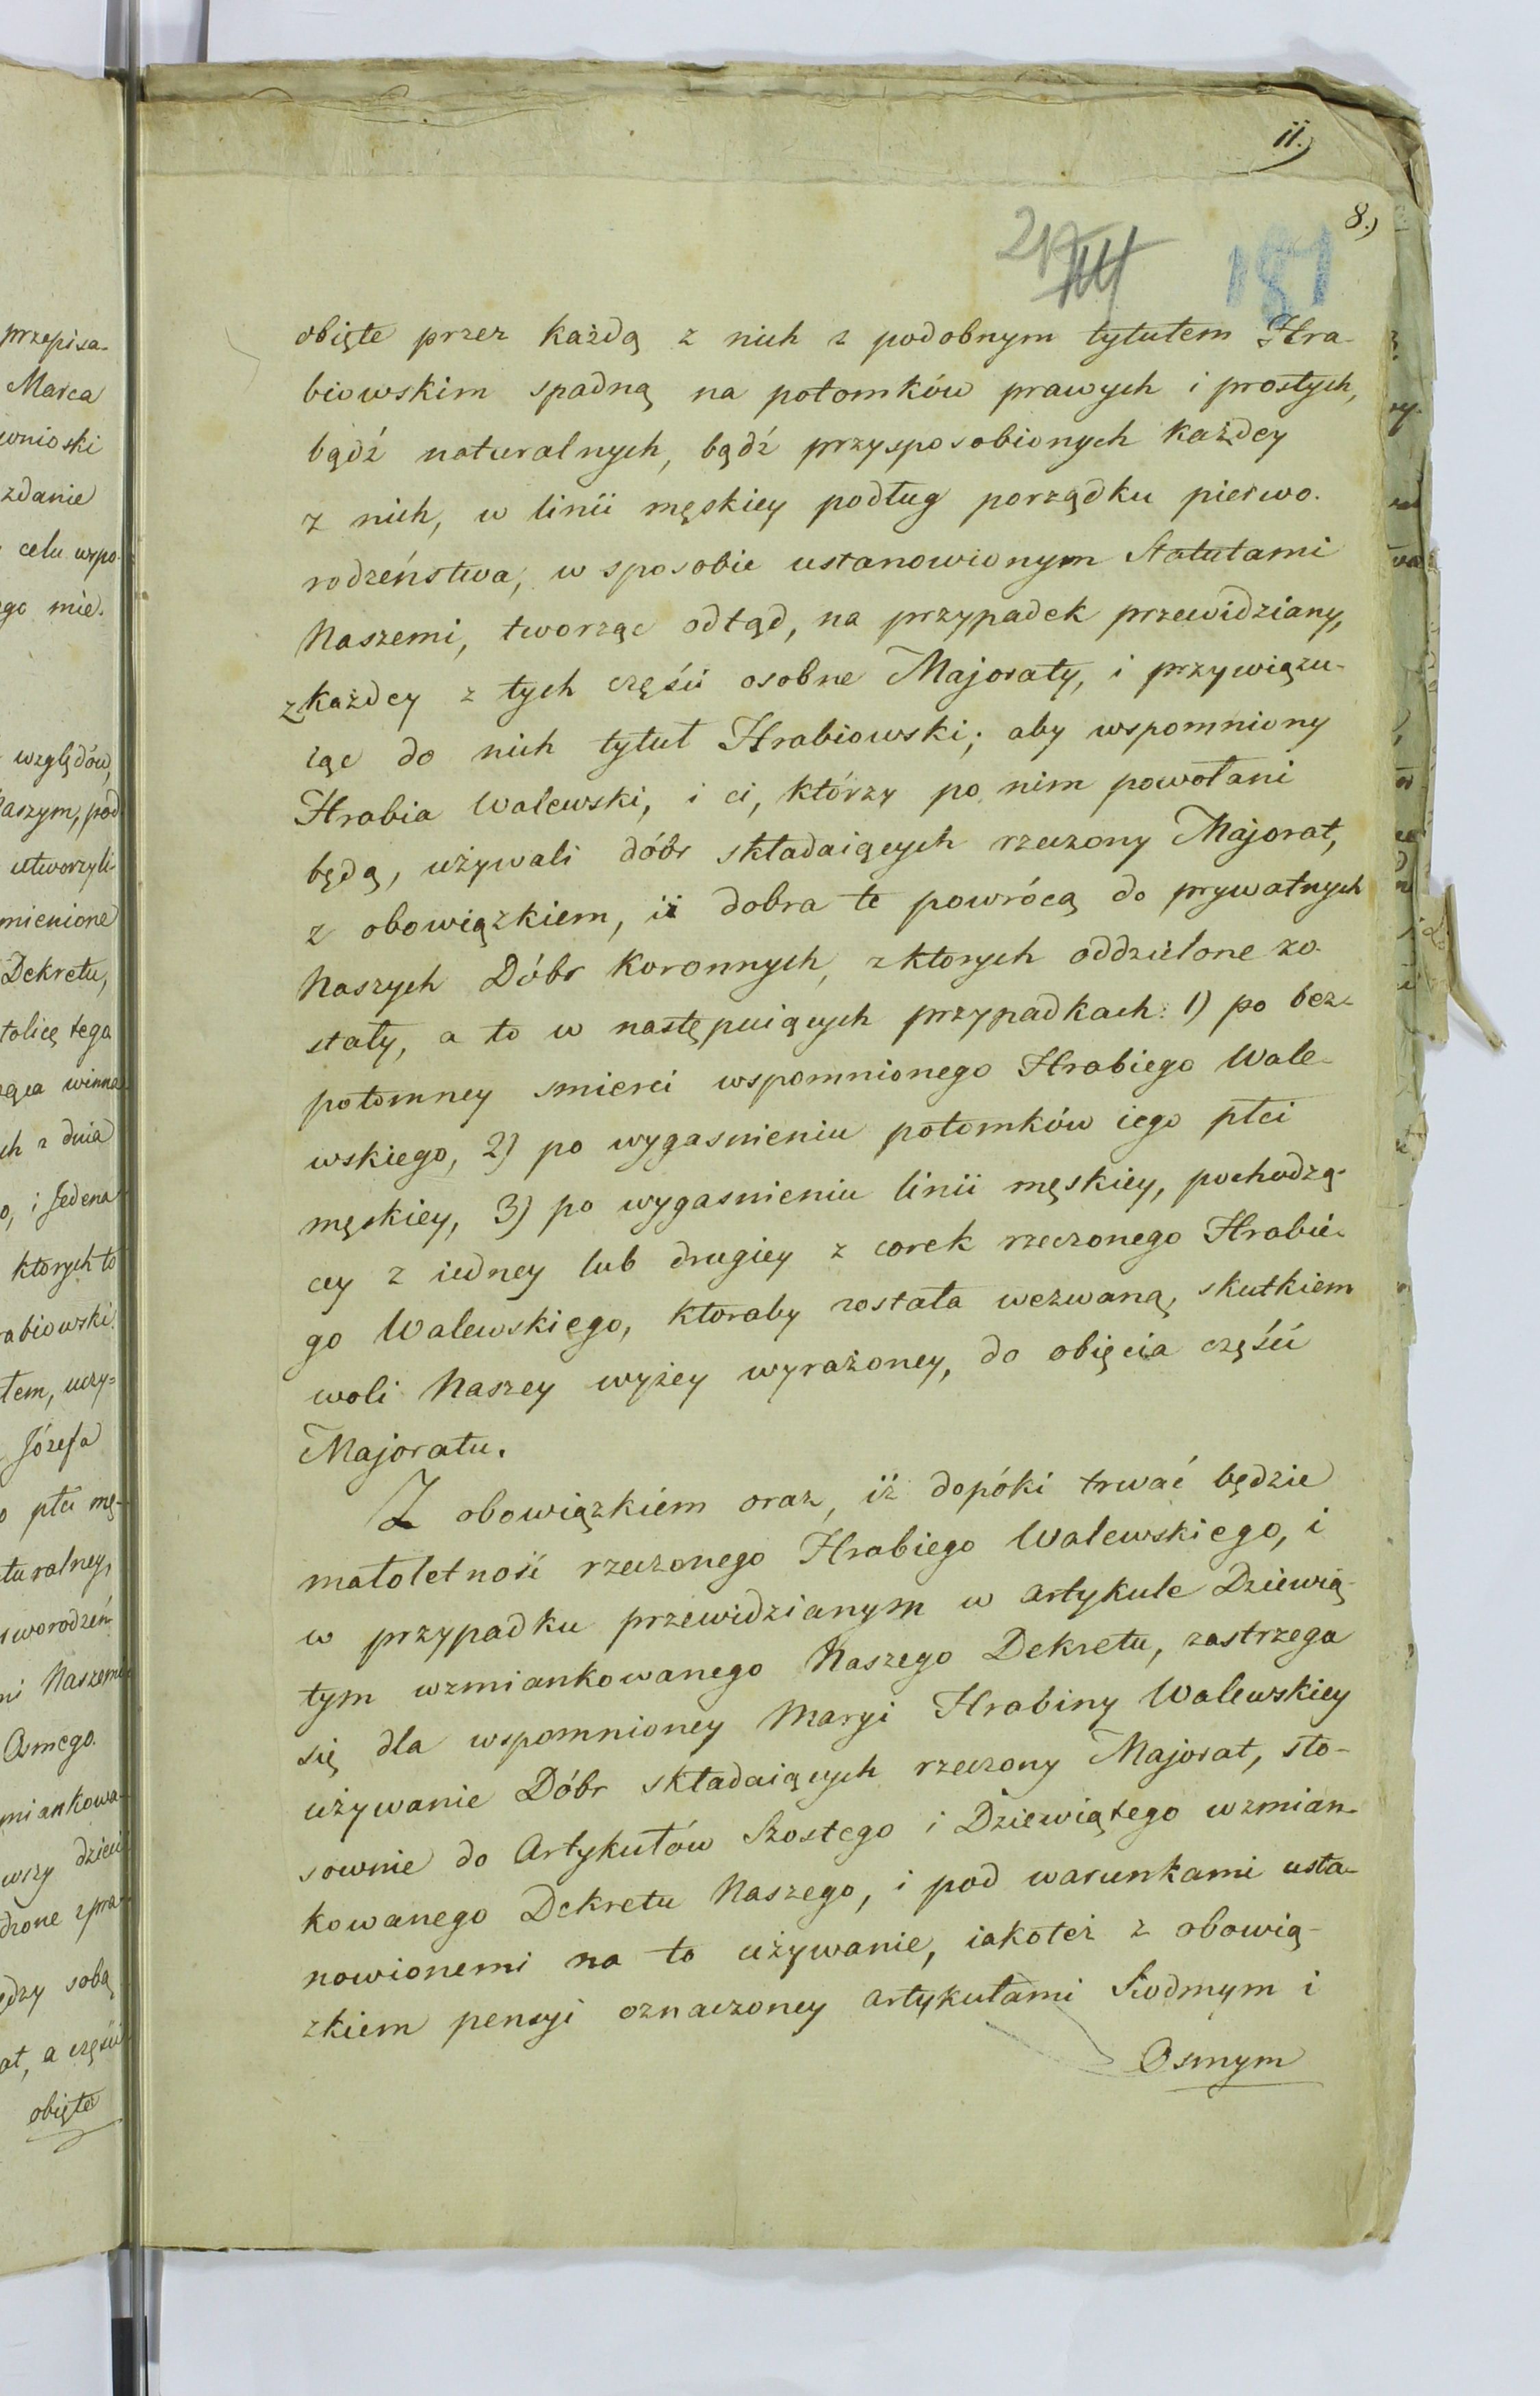 11.)
8.)
181
obięte przez każdą z nich z podobnym tytułem Hra-
biowskim spadną na potomków prawych i prostych,
bądź naturalnych, bądź przysposobionych każdey
z nich, w linii męskiey podług porządku pierwo-
rodzeństwa, w sposobie ustanowionym Statutami
Naszemi, tworząc odtąd, na przypadek przewidziany,
z każdey z tych części osobne Majoraty, i przywiązu-
iąc do nich tytuł Hrabiowski; aby wspomniony
Hrabia Walewski, i ci, którzy po nim powołani
będą, używali dóbr składaiących rzeczony Majorat,
z obowiązkiem, iż dobra te powrócą do prywatnych
Naszych Dóbr Koronnych, z ktorych oddzielone zo-
stały, a to w następuiących przypadkach: 1) po bez-
potomney smierci wspomnionego Hrabiego Wale-
wskiego, 2) po wygasnieniu potomków iego płci
męskiey, 3) po wygasnieniu linii męskiey, pochodzą-
cey z iedney lub drugiey z corek rzeczonego Hrabie-
go Walewskiego, ktoraby została wezwaną, skutkiem
woli Naszey wyżey wyrażoney, do obięcia części
Majoratu.
Z obowiązkiem oraz, iż dopóki trwać będzie
małoletność rzeczonego Hrabiego Walewskiego, i
w przypadku przewidzianym w artykule Dziewią-
tym wzmiankowanego Naszego Dekretu, zastrzega
się dla wspomnioney Maryi Hrabiny Walewskiey
używanie Dóbr składaiących rzeczony Majorat, sto-
sownie do Artykułów Szostego i Dziewiątego wzmian-
kowanego Dekretu Naszego, i pod warunkami usta-
nowionemi na to używanie, iakoteż z obowią-
zkiem pensyi oznaczoney artykułami Siodmym i
Osmym
przepisa-
Marca
wnioski
zdanie
celu wspo-
go mie-
względów,
aszym, pod
utworzyli
mienione
Dekretu,
tolicę tego
winna
z dnia
i Jedena
ktorych to
abiowski
tem, uczy=
Józefa
płci mę-
turalney,
worodzeń
Naszemi
Osmego.
miankowa-
wszy dzieci
dzone z pra-
dzy sobą
at, a części
obięte